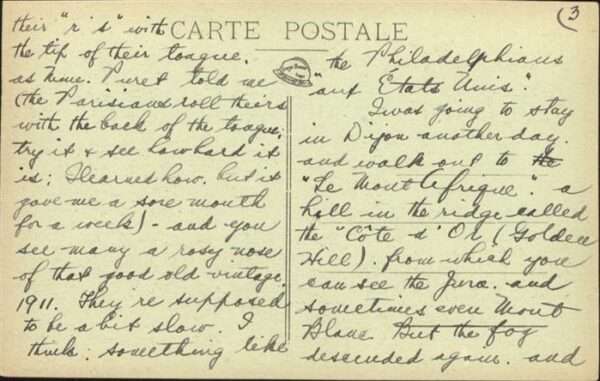 (3
CARTE POSTALE
their "r's" with
the tip of their tongue.
as Mme. Puret told me
(the Parisians roll theirs
with the back of the tongue;
try it & see how hard it
is; I learned how, but it
gave me a sore mouth
for a week) - and you
see many a rosy nose
of that good old vintage,
1911. They're supposed
to be a bit slow. I
think; something like
the Philadelphians
"aux Etats Unis".
I was going to stay
in Dijon another day.
and walk out to He
"Le Mont Afrique". a
hill in the ridge called
the "Côte d'Or (Golden
Hill). from which you
can see the Jura. and
sometimes even Mont
Blanc. But the fog
descended again. and